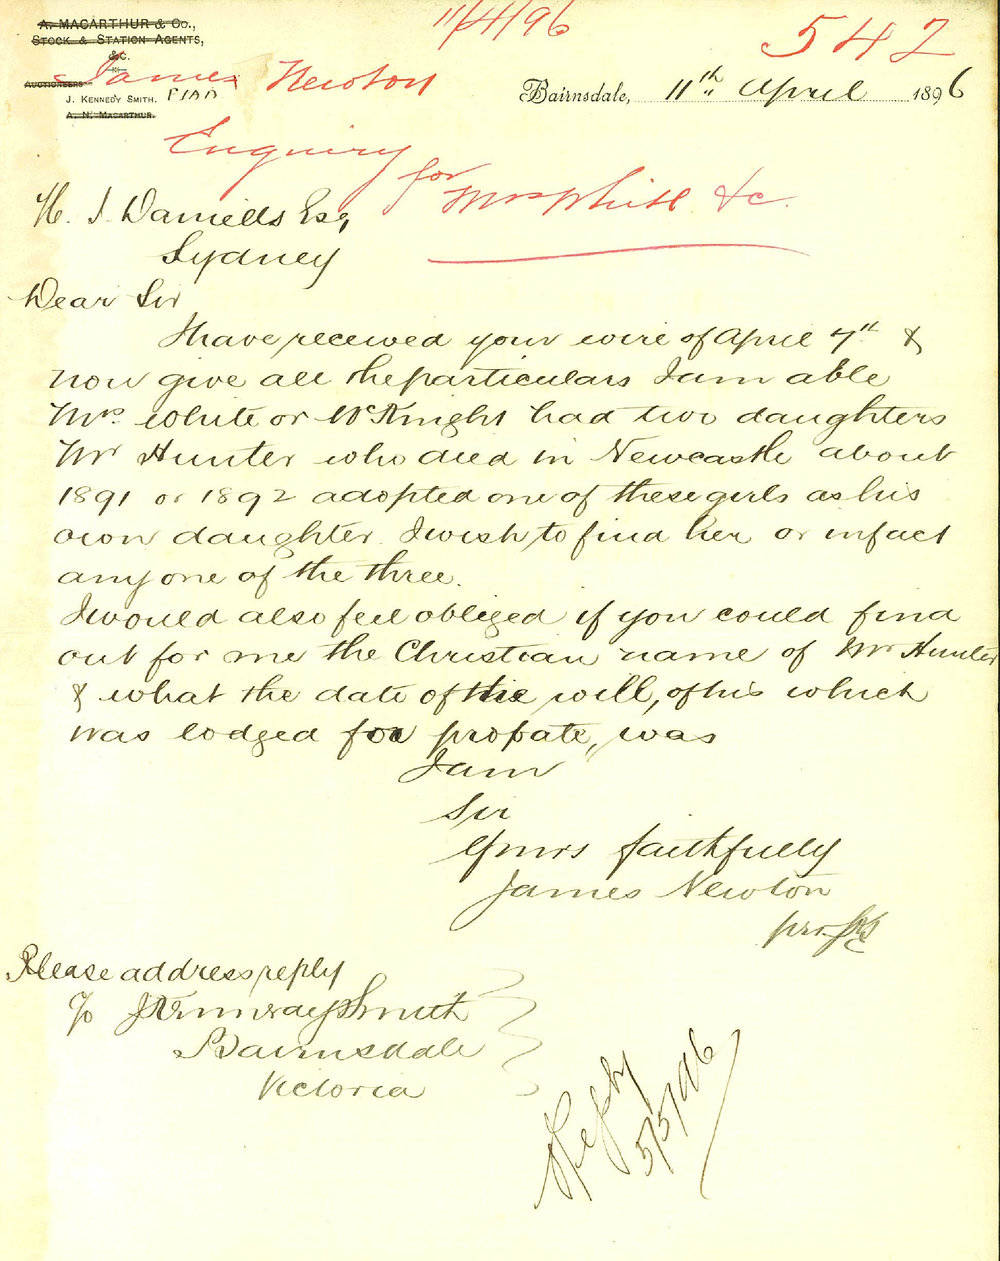 A. MACARTHUR & Co.,
STOCK & STATION AGENTS,
&C.
AUCTIONEERS
J. KENNEDY SMITH.
A. N. MACARTHUR.
11/4/96
542
James Newton
Bairnsdale, 11th April 1896
Enquiry for Mrs White &c.
H. J. Daniells Esq,
Sydney
Dear Sir
I have received your wire of April 7th &
now give all the particulars I am able
Mrs. White or McKnight had two daughters
Mr Hunter who died in Newcastle about
1891 or 1892 adopted one of these girls as his
own daughter. I wish to find her or infact
any one of the three.
I would also feel obliged if you could find
out for me the Christian name of Mr Hunter
& what the date of the will, of his which
was lodged for probate, was
I am
Sir
Yours faithfully
James Newton
pro JKS
Please address reply
c/o J Kennedy Smith
Bairnsdale
Victoria
Reply
5/5/96